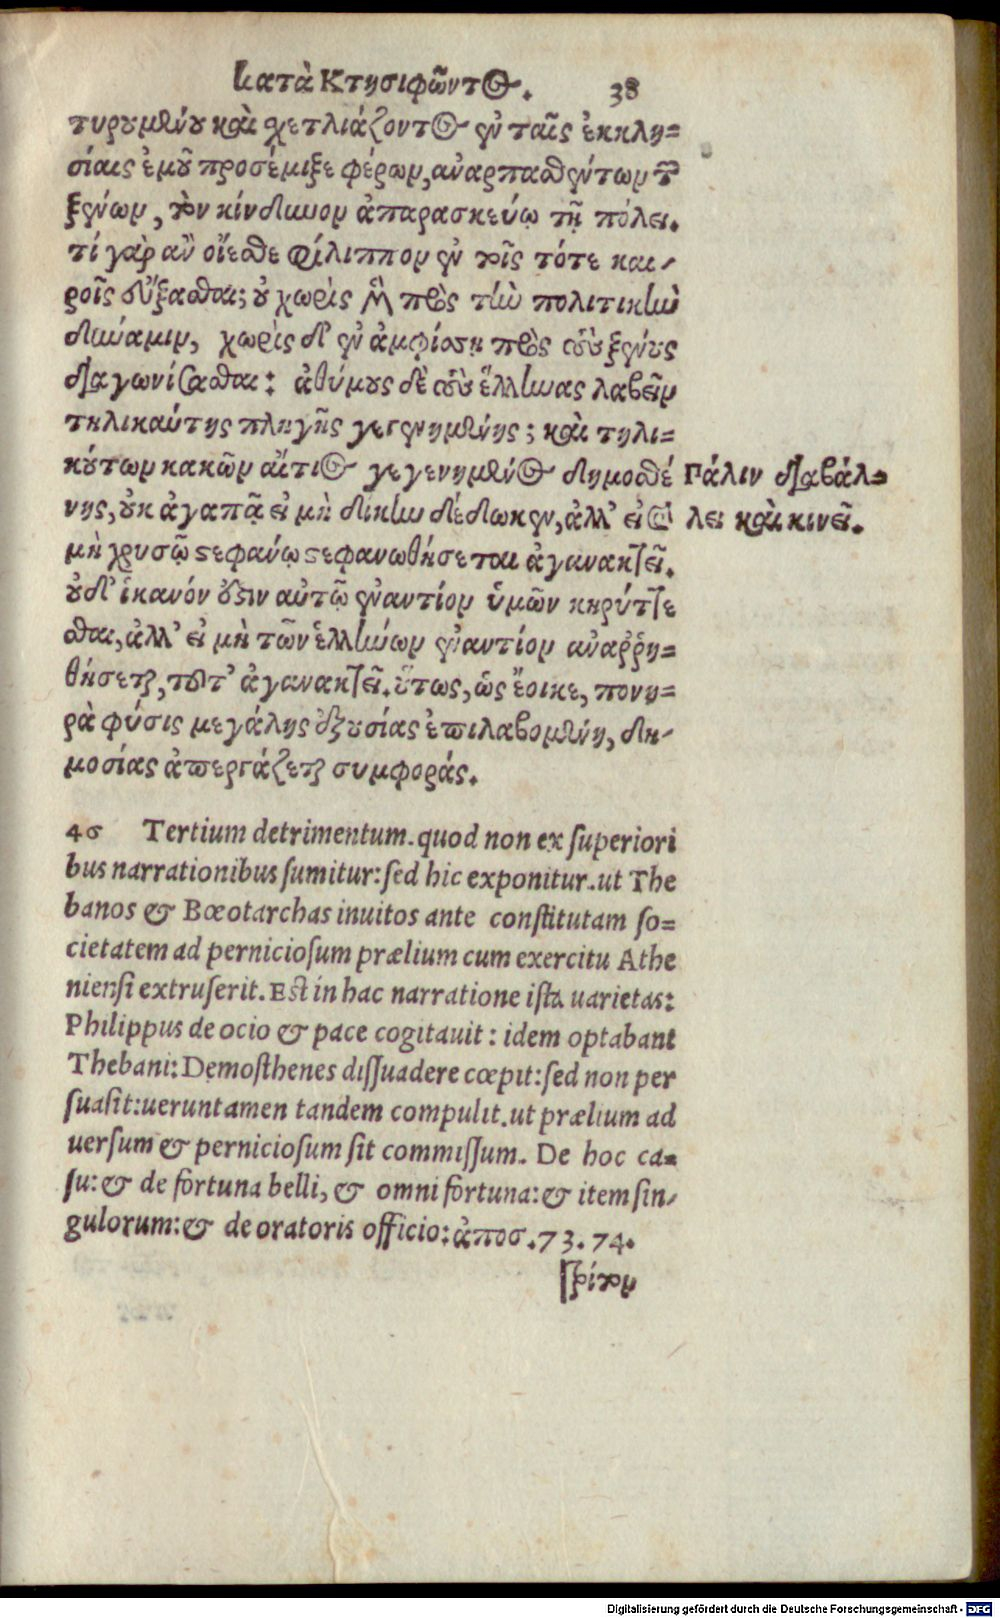 κατὰ Κτησιφῶντος. 38
τυρουμένου καὶ σχετλιάζοντος ἐν ταῖς ἐκκλη=
σίαις ἐμοῦ προσέμιξε φέρων, ἀναρπασθέντων τῶν
ξένων, τὸν κίνδυνον ἀπαρασκεύῳ τῇ πόλει.
τί γὰρ ἂν οἴεσθε Φίλιππον ἐν τοῖς τότε και-
ροῖς εὔξασθαι; οὐ χωρὶς μὲν πρὸς τὴν πολιτικὴν
δύναμιν, χωρὶς δ' ἐν ἀμφίσσῃ πρὸς τοὺς ξένους
διαγωνίσασθαι: ἀθύμους δὲ τοὺς ἕλληνας λαβεῖν
τηλικαύτης πληγῆς γεγενημένης; καὶ τηλι=
κούτων κακῶν αἴτιος γεγενημένος δημοσθέ
νης, οὐκ ἀγαπᾷ εἰ μὴ δίκην δέδωκεν, ἀλλ' εἰ καὶ
μὴ χρυσῷ στεφάνῳ στεφανωθήσεται ἀγανακτεῖ.
οὐδ' ἱκανόν ἐστιν αὐτῷ ἐναντίον ὑμῶν κηρύττε
σθαι, ἀλλ' εἰ μὴ τῶν ἑλλήνων ἐναντίον ἀναῤῥη=
θήσεται, τοῦτ' ἀγανακτεῖ. οὕτως, ὡς ἔοικε, πονη=
ρὰ φύσις μεγάλης ἐξουσίας ἐπιλαβομένη, δη-
μοσίας ἀπεργάζεται συμφοράς.
Πάλιν διαβάλ=
λει καὶ κινεῖ.
46 Tertium detrimentum. quod non ex superiori
bus narrationibus sumitur: sed hic exponitur. ut The
banos & Bœotarchas inuitos ante constitutam so=
cietatem ad perniciosum prælium cum exercitu Athe
niensi extruserit. Est in hac narratione ista uarietas:
Philippus de ocio & pace cogitauit: idem optabant
Thebani: Demosthenes dissuadere cœpit: sed non per
suasit: ueruntamen tandem compulit. ut prælium ad
uersum & perniciosum sit commissum. De hoc ca=
su: & de fortuna belli, & omni fortuna: & item sin-
gulorum: & de oratoris officio: ἀποσ. 73. 74.
Τρίτον
Digitalisierung gefördert durch die Deutsche Forschungsgemeinschaft - DFG